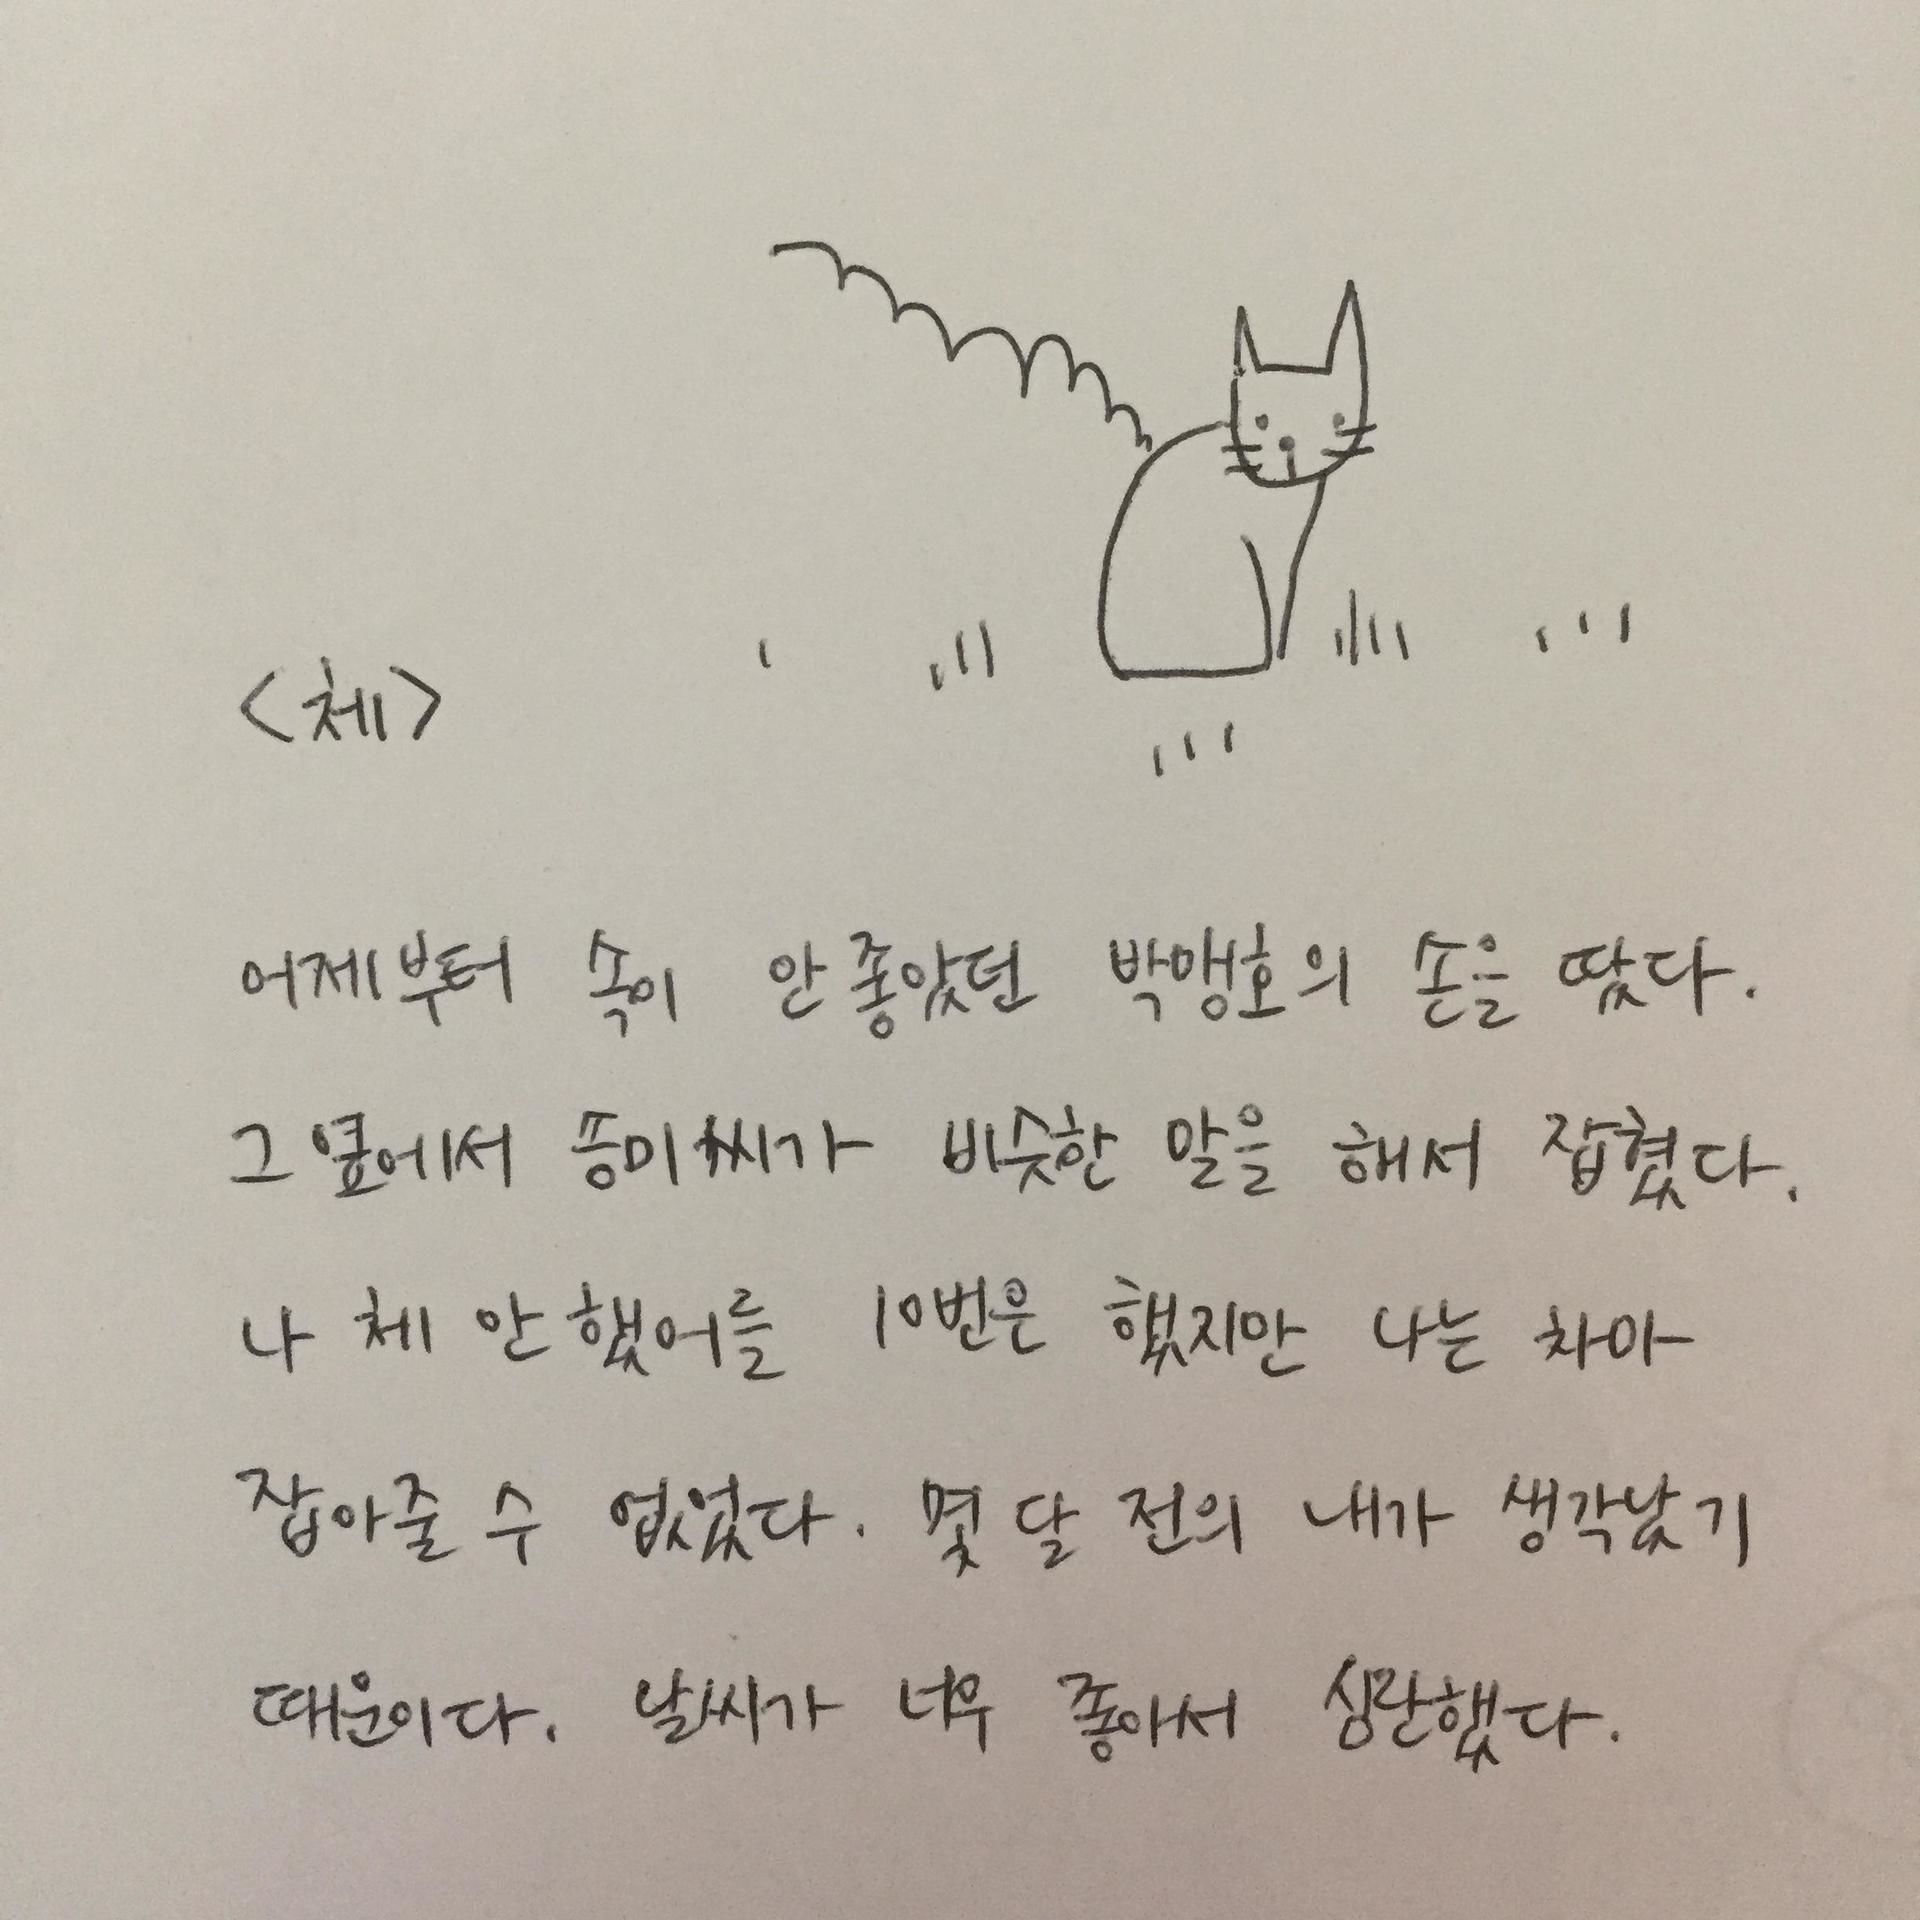 <체>
어제부터 속이 안 좋았던 박맹호의 손을 땄다.
그 옆에서 풍미씨가 비슷한 말을 해서 잡혔다.
나 체 안 했어를 10번은 했지만 나는 차마
잡아줄 수 없었다. 몇 달 전의 내가 생각났기
때문이다. 날씨가 너무 좋아서 심란했다.